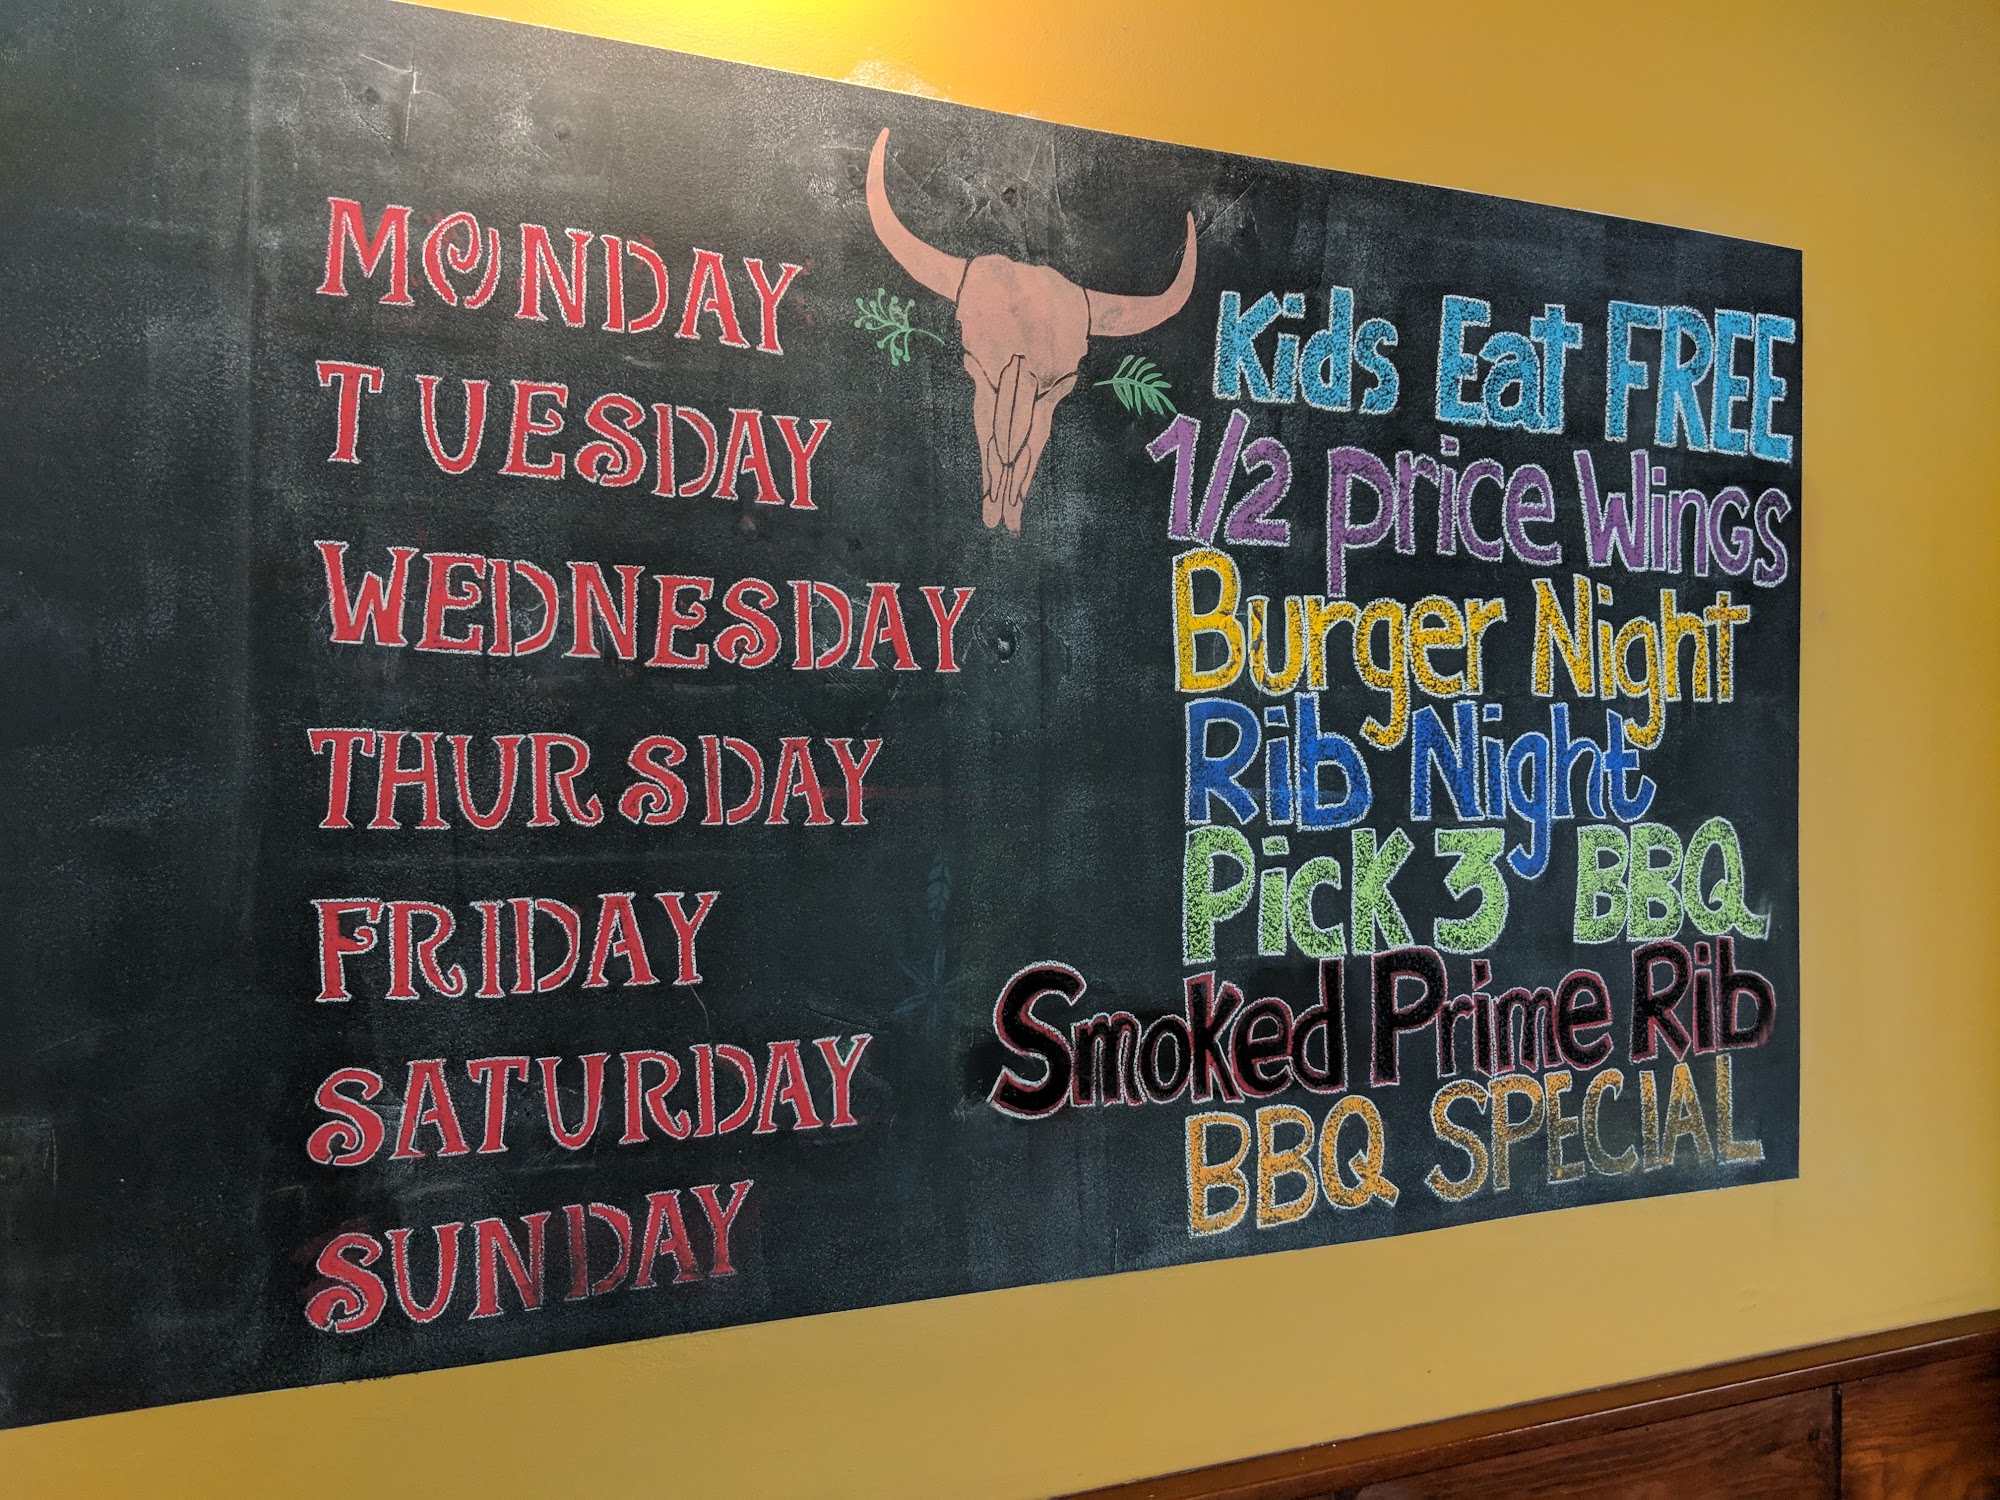 MONDAY Kids Eat FREE
TUESDAY 1/2 price Wings
WEDNESDAY Burger Night
THURSDAY Rib Night
FRIDAY Pick 3 BBQ
SATURDAY Smoked Prime Rib
SUNDAY BBQ SPECIAL